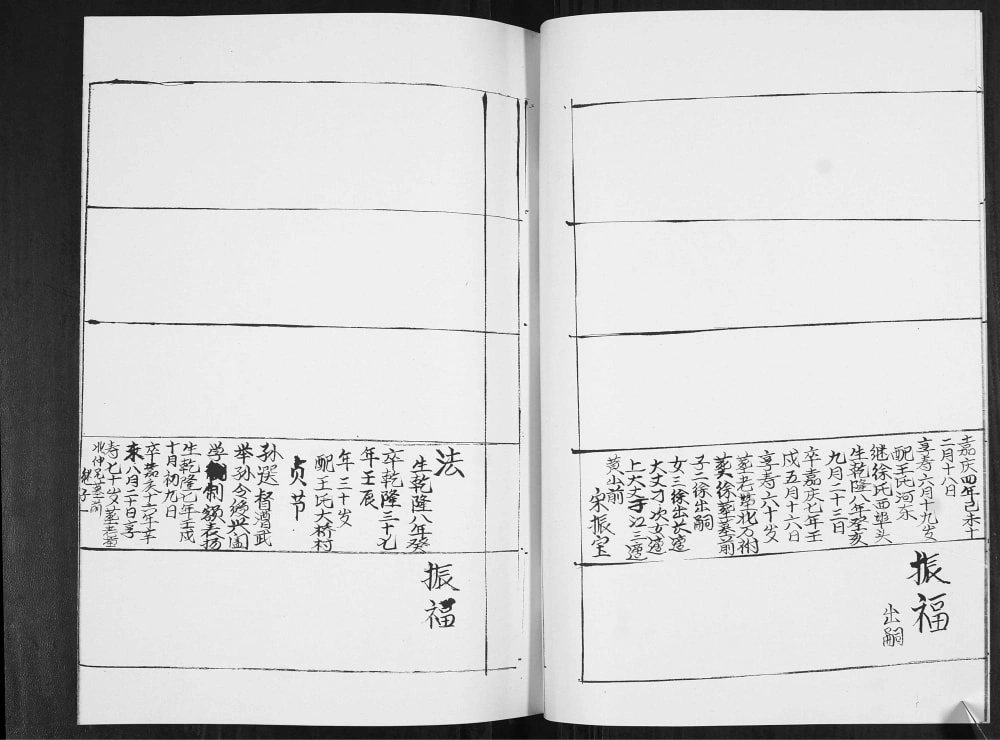 嘉庆四年己未十
二月十八日
享寿六月十九岁
配王氏河东
继徐氏西埠头
生乾隆八年癸亥
九月二十三日
卒嘉庆七年壬
戌五月十六日
享寿六十岁
墓老茔北万树
葬徐墓墓前
子二徐出嗣
女三徐出长适
大丈刁次女适
上大丈子江三适
黄山前
宋振宝
振福
出嗣
法
生乾隆八年癸
卒乾隆三十七
年壬辰
年三十岁
配王氏大桥村
贞节
孙選督瀆武
举孙令绳世阖
学制额表扬
生乾隆七年壬戌
十月初九日
卒嘉庆十六年辛
未八月二十日享
寿七十岁墓老茔
北仲兄墓前
继子一
振福